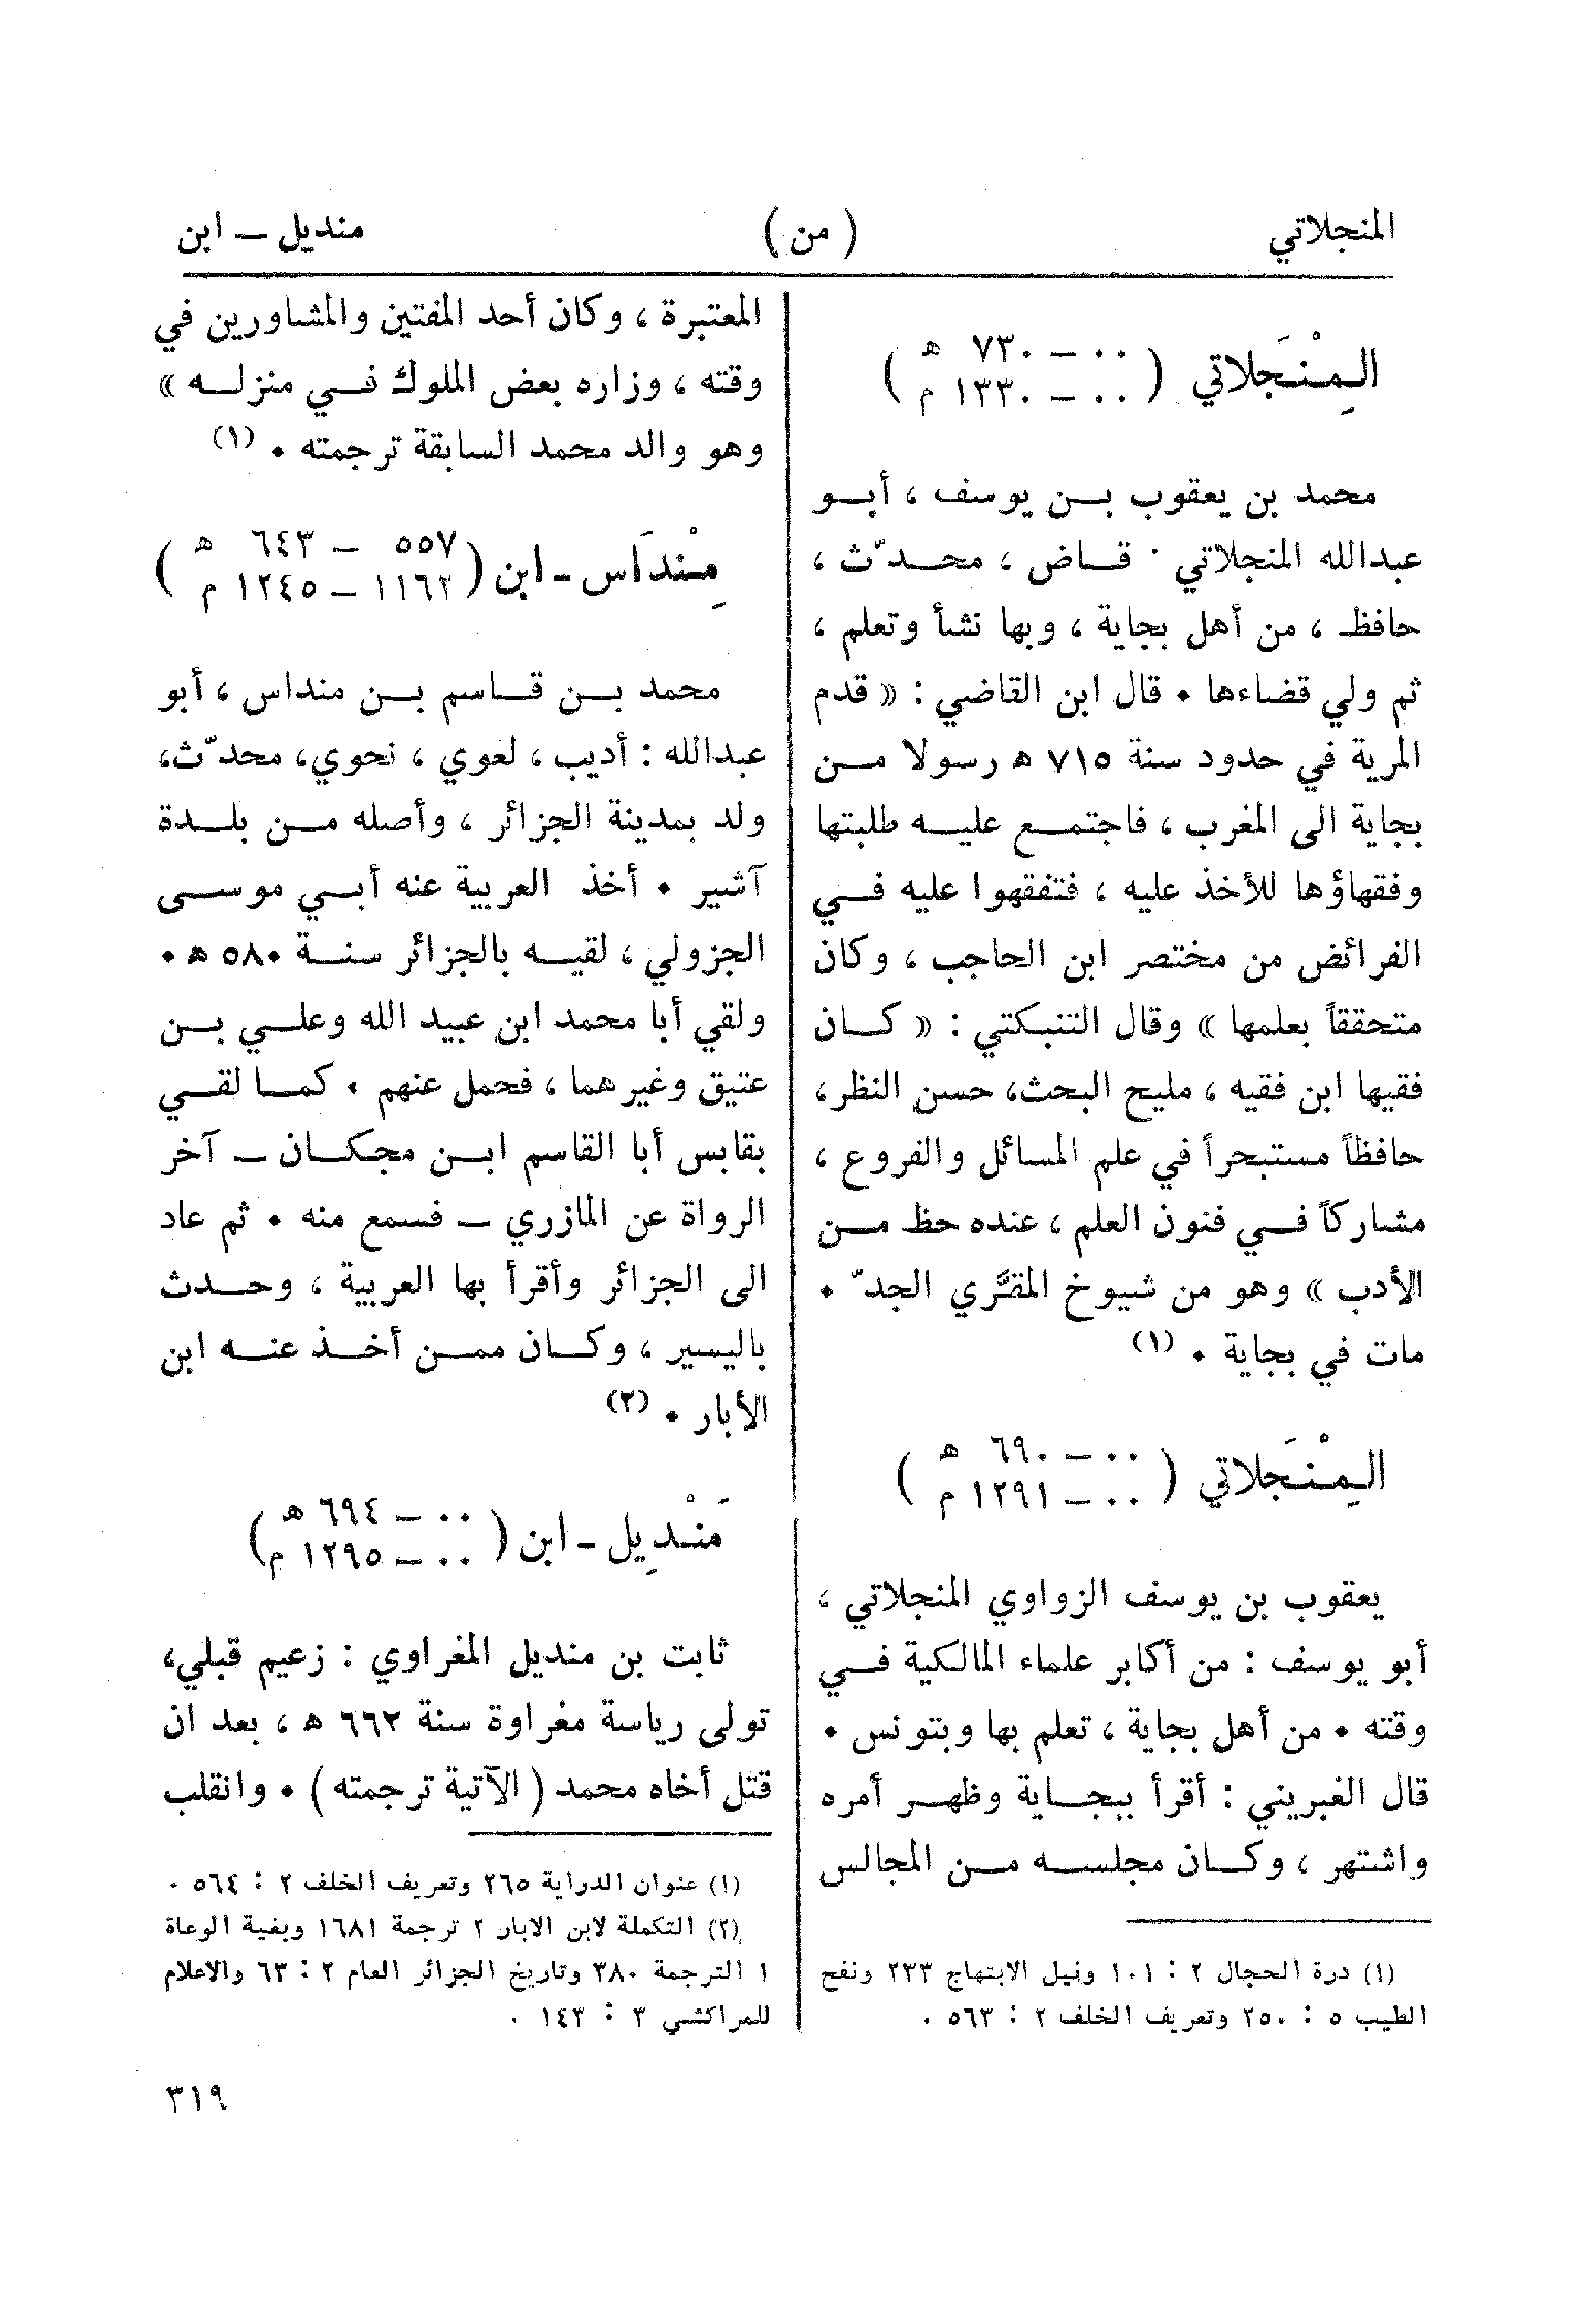 المنجلاتي ( من ) منديل ــ ابن
المِنْجَلاتي ( ٠٠ ــ ٧٣٠ هـ
٠٠ ــ ١٣٣٠ م )
محمد بن يعقوب بن يوسف ، أبو
عبدالله المنجلاتي . قاض ، محدّث ،
حافظ ، من أهل بجاية ، وبها نشأ وتعلم ،
ثم ولي قضاءها . قال ابن القاضي : « قدم
المرية في حدود سنة ٧١٥ هـ رسولا من
بجاية الى المغرب ، فاجتمع عليه طلبتها
وفقهاؤها للأخذ عليه ، فتفقهوا عليه في
الفرائض من مختصر ابن الحاجب ، وكان
متحققاً بعلمها » وقال التنبكتي : « كان
فقيها ابن فقيه ، مليح البحث، حسن النظر،
حافظاً مستبحراً في علم المسائل والفروع ،
مشاركاً في فنون العلم ، عنده حظ من
الأدب » وهو من شيوخ المقَّري الجدّ .
مات في بجاية . (١)
المِنْجَلاتي ( ٠٠ ــ ٦٩٠ هـ
٠٠ ــ ١٢٩١ م )
يعقوب بن يوسف الزواوي المنجلاتي ،
أبو يوسف : من أكابر علماء المالكية في
وقته . من أهل بجاية ، تعلم بها وبتونس .
قال الغبريني : أقرأ ببجاية وظهر أمره
واشتهر ، وكان مجلسه من المجالس
(١) درة الحجال ٢ : ١٠١ ونيل الابتهاج ٢٣٣ ونفح
الطيب ٥ : ٢٥٠ وتعريف الخلف ٢ : ٥٦٣ .
المعتبرة ، وكان أحد المفتين والمشاورين في
وقته ، وزاره بعض الملوك في منزله »
وهو والد محمد السابقة ترجمته . (١)
مِنْدَاس ــ ابن ( ٥٥٧ ــ ٦٤٣ هـ
١١٦٢ ــ ١٢٤٥ م )
محمد بن قاسم بن منداس ، أبو
عبدالله : أديب ، لغوي ، نحوي، محدّث،
ولد بمدينة الجزائر ، وأصله من بلدة
آشير . أخذ العربية عنه أبي موسى
الجزولي ، لقيه بالجزائر سنة ٥٨٠ هـ .
ولقي أبا محمد ابن عبيد الله وعلي بن
عتيق وغيرهما ، فحمل عنهم . كما لقي
بقابس أبا القاسم ابن مجكان ــ آخر
الرواة عن المازري ــ فسمع منه . ثم عاد
الى الجزائر وأقرأ بها العربية ، وحدث
باليسير ، وكان ممن أخذ عنه ابن
الأبار . (٢)
مَنْدِيل ــ ابن ( ٠٠ ــ ٦٩٤ هـ
٠٠ ــ ١٢٩٥ م )
ثابت بن منديل المغراوي : زعيم قبلي،
تولى رياسة مغراوة سنة ٦٦٢ هـ ، بعد ان
قتل أخاه محمد ( الآتية ترجمته ) . وانقلب
(١) عنوان الدراية ٢٦٥ وتعريف الخلف ٢ : ٥٦٤ .
(٢) التكملة لابن الابار ٢ ترجمة ١٦٨١ وبغية الوعاة
١ الترجمة ٣٨٠ وتاريخ الجزائر العام ٢ : ٦٣ والاعلام
للمراكشي ٣ : ١٤٣ .
٣١٩